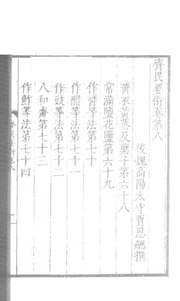 齊民要術卷第八
後魏高陽太守賈思勰撰
黃衣黃蒸及糵子第六十八
常滿鹽花鹽第六十九
作醬等法第七十
作酢等法第七十一
作豉等法第七十二
八和虀第七十三
作鮓等法第七十四